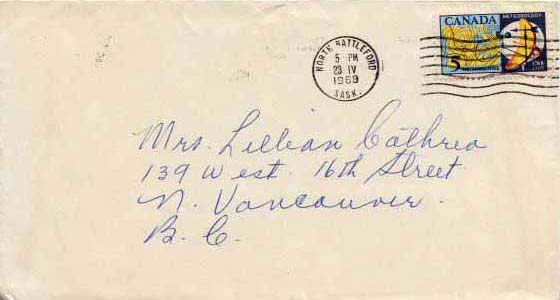 CANADA
METEOROLOGY
5
NORTH BATTLEFORD
5 PM
23 IV
1969
SASK.
Mrs. Lillian Cathrea
139 West 16th Street
N. Vancouver.
B. C.